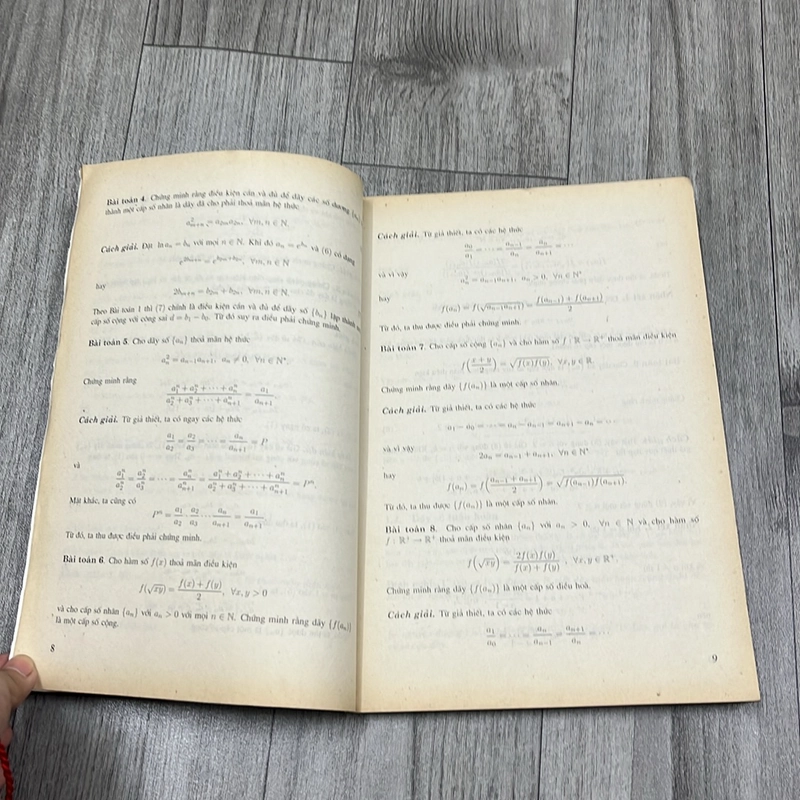 Bài toán 4. Chứng minh rằng điều kiện cần và đủ để dãy các số dương {aₙ}
thành một cấp số nhân là dãy đã cho phải thoả mãn hệ thức
a²ₘ₊ₙ = a₂ₘa₂ₙ, ∀m, n ∈ N.
Cách giải. Đặt ln aₙ = bₙ với mọi n ∈ N. Khi đó aₙ = e^{bₙ} và (6) có dạng
e^{2bₘ₊ₙ} = e^{b₂ₘ+b₂ₙ}, ∀m, n ∈ N
hay
2bₘ₊ₙ = b₂ₘ + b₂ₙ, ∀m, n ∈ N.
Theo Bài toán 1 thì (7) chính là điều kiện cần và đủ để dãy số {bₙ} lập thành
cấp số cộng với công sai d = b₁ − b₀. Từ đó suy ra điều phải chứng minh.
Bài toán 5. Cho dãy số {aₙ} thoả mãn hệ thức
aₙ² = aₙ₋₁aₙ₊₁, aₙ ≠ 0, ∀n ∈ N*.
Chứng minh rằng
(a₁ⁿ + a₂ⁿ + ··· + aₙⁿ)/(a₂ⁿ + a₃ⁿ + ··· + aₙ₊₁ⁿ) = a₁/aₙ₊₁
Cách giải. Từ giả thiết, ta có ngay các hệ thức
a₁/a₂ = a₂/a₃ = ··· = aₙ/aₙ₊₁ = P
và
a₁ⁿ/a₂ⁿ = a₂ⁿ/a₃ⁿ = ··· = aₙⁿ/aₙ₊₁ⁿ = (a₁ⁿ + a₂ⁿ + ··· + aₙⁿ)/(a₂ⁿ + a₃ⁿ + ··· + aₙ₊₁ⁿ) = Pⁿ.
Mặt khác, ta cũng có
Pⁿ = a₁/a₂ · a₂/a₃ ··· aₙ/aₙ₊₁ = a₁/aₙ₊₁
Từ đó, ta thu được điều phải chứng minh.
Bài toán 6. Cho hàm số f(x) thoả mãn điều kiện
f(√xy) = (f(x) + f(y))/2, ∀x, y > 0
và cho cấp số nhân {aₙ} với aₙ > 0 với mọi n ∈ N. Chứng minh rằng dãy {f(aₙ)}
là một cấp số cộng.
8
Cách giải. Từ giả thiết, ta có các hệ thức
a₀/a₁ = ··· = aₙ₋₁/aₙ = aₙ/aₙ₊₁ = ···
và vì vậy
aₙ² = aₙ₋₁aₙ₊₁, aₙ > 0, ∀n ∈ N*
hay
f(aₙ) = f(√aₙ₋₁aₙ₊₁) = (f(aₙ₋₁) + f(aₙ₊₁))/2
Từ đó, ta thu được điều phải chứng minh.
Bài toán 7. Cho cấp số cộng {aₙ} và cho hàm số f : R → R⁺ thoả mãn điều kiện
f((x + y)/2) = √f(x)f(y), ∀x, y ∈ R
Chứng minh rằng dãy {f(aₙ)} là một cấp số nhân.
Cách giải. Từ giả thiết, ta có các hệ thức
a₁ − a₀ = ··· = aₙ − aₙ₋₁ = aₙ₊₁ − aₙ = ···
và vì vậy
2aₙ = aₙ₋₁ + aₙ₊₁, ∀n ∈ N*
hay
f(aₙ) = f((aₙ₋₁ + aₙ₊₁)/2) = √f(aₙ₋₁)f(aₙ₊₁).
Từ đó, ta thu được {f(aₙ)} là một cấp số nhân.
Bài toán 8. Cho cấp số nhân {aₙ} với aₙ > 0, ∀n ∈ N và cho hàm số
f : R⁺ → R⁺ thoả mãn điều kiện
f(√xy) = 2f(x)f(y)/(f(x) + f(y)), ∀x, y ∈ R⁺
Chứng minh rằng dãy {f(aₙ)} là một cấp số điều hoà.
Cách giải. Từ giả thiết, ta có các hệ thức
a₁/a₀ = ··· = aₙ/aₙ₋₁ = aₙ₊₁/aₙ = ···
9